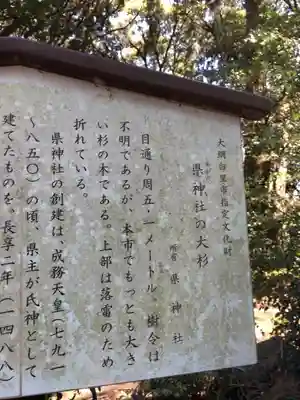 大網白里市指定文化財
県神社の大杉
所有 県神社
目通り周五．一メートル 樹令は
不明であるが、本市でもっとも大き
い杉の木である。上部は落雷のため
折れている。
県神社の創建は、成務天皇（七九一
～八五〇）の頃、県主が氏神として
建てたものを。長享二年（一四八八）